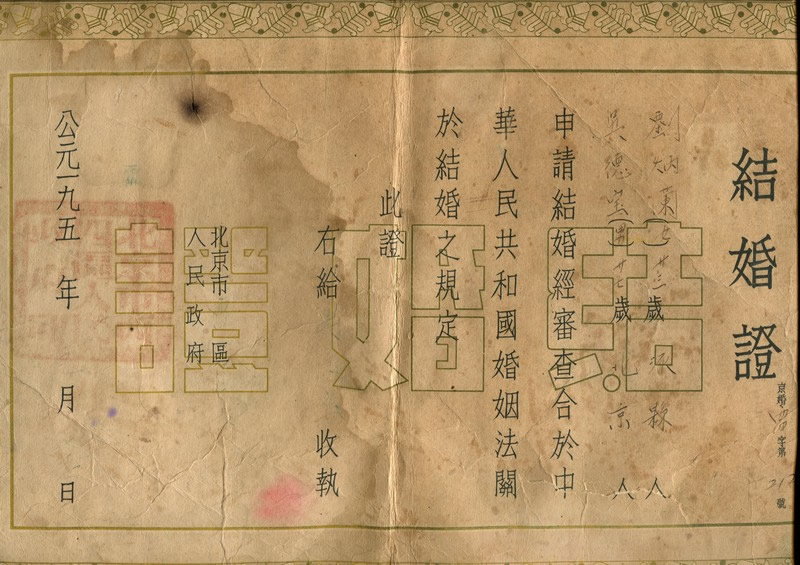 結婚證
京婚 字第 號
劉炳蘭(女廿三歲 人
吳德宝(男廿七歲 北京 人
申請結婚經審查合於中
華人民共和國婚姻法關
於結婚之規定
此證
右給 收執
北京市 區
人民政府
公元一九五 年 月 日